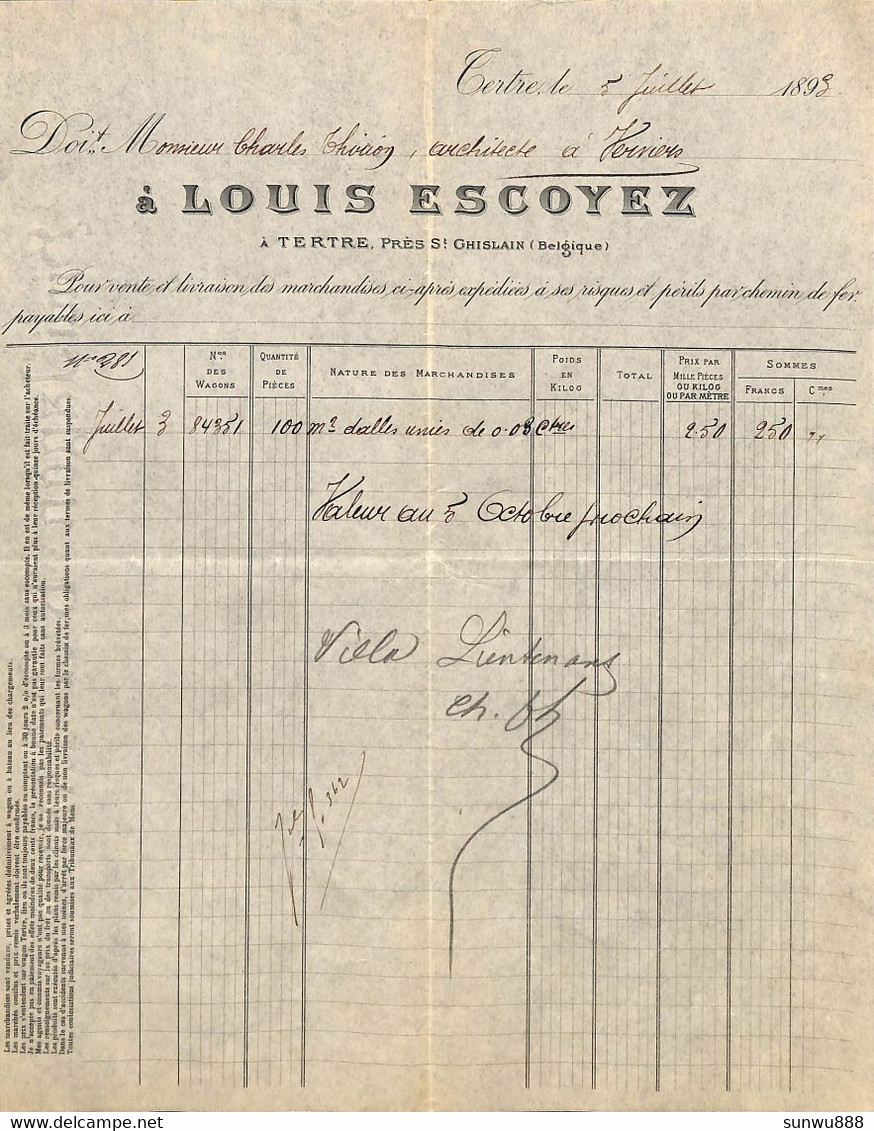 Tertre, le 5 Juillet 1893
Doit Monsieur Charles Thirion, architecte à Verviers
à LOUIS ESCOYEZ
À TERTRE, PRÈS St GHISLAIN (Belgique)
Pour vente et livraison des marchandises ci-après expédiées à ses risques et périls par chemin de fer.
payables ici à
No 381
Nos DES WAGONS
QUANTITÉ DE PIÈCES
NATURE DES MARCHANDISES
POIDS EN KILOG
TOTAL
PRIX PAR MILLE PIÈCES OU KILOG OU PAR MÈTRE
SOMMES
FRANCS
Cmes
Juillet 3 84351 100 m2 dalles unies de 0.03 ctres 2.50 250 "
Valeur au 5 Octobre prochain
Villa Lieutenant
Ch. Th
362
Les marchandises sont vendues, prises et agréées définitivement à wagon ou à bateau au lieu des chargements.
Les marchés conclus et prix remis verbalement doivent être confirmés.
Les prix s'entendent sur wagon Tertre, lieu où ils sont toujours payables au comptant ou à 30 jours 2 o/o d'escompte ou à 3 mois sans escompte. Il en est de même lorsqu'il est fait traite sur l'acheteur.
Je n'accepte pas en paiement des effets moindres de deux cents francs, la présentation à bonne date n'est pas garantie pour ceux qui n'auraient plus à leur réception quinze jours d'échéance.
Mes agents et commis voyageurs n'ont pas qualité pour recevoir, je ne reconnais pas les paiements qui leur sont faits sans autorisation.
Les renseignements sur les prix du frêt ou des transports sont donnés sans responsabilité.
Les produits sont exécutés d'après les plans remis par les clients mais à leurs risques et périls concernant les formes brévetées.
Dans le cas d'accidents survenus à mes usines, d'arrêt par force majeure ou de non livraison des wagons par le chemin de fer, mes obligations quant aux termes de livraison sont suspendues.
Toutes contestations judiciaires seront soumises aux Tribunaux de Mons.
sunwu888